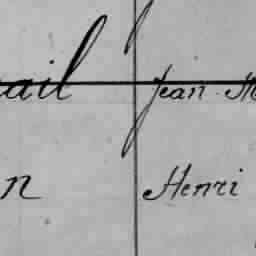 ail Jean M
n Henri